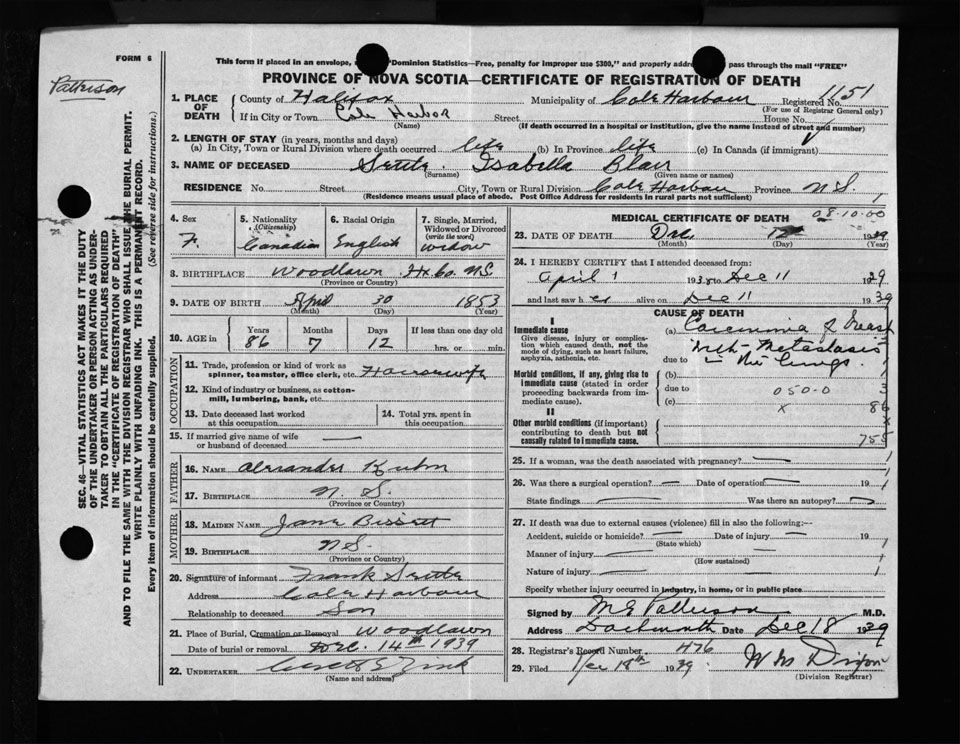 FORM 6
This form if placed in an envelope, "Dominion Statistics—Free, penalty for improper use $300," and properly pass through the mail "FREE"
Patterson
PROVINCE OF NOVA SCOTIA—CERTIFICATE OF REGISTRATION OF DEATH
1. PLACE OF DEATH County of Halifax Municipality of Cole Harbour Registered No. 1151
(For use of Registrar General only)
If in City or Town Cole Harbor Street House No.
(Name) (If death occurred in a hospital or institution, give the name instead of street and number)
2. LENGTH OF STAY (in years, months and days)
(a) In City, Town or Rural Division where death occurred life (b) In Province life (c) In Canada (if immigrant)
3. NAME OF DECEASED Settle Isabella Blair
(Surname) (Given name or names)
RESIDENCE No. Street City, Town or Rural Division Cole Harbour Province N.S.
(Residence means usual place of abode. Post Office Address for residents in rural parts not sufficient)
SEC. 46—VITAL STATISTICS ACT MAKES IT THE DUTY
OF THE UNDERTAKER OR PERSON ACTING AS UNDERTAKER
TO OBTAIN ALL THE PARTICULARS REQUIRED
IN THE "CERTIFICATE OF REGISTRATION OF DEATH"
AND TO FILE THE SAME WITH THE DIVISION REGISTRAR WHO SHALL ISSUE THE BURIAL PERMIT.
WRITE PLAINLY WITH UNFADING INK. THIS IS A PERMANENT RECORD.
Every item of information should be carefully supplied. (See reverse side for instructions.)
4. Sex 5. Nationality 6. Racial Origin 7. Single, Married,
(Citizenship) Widowed or Divorced
(write the word)
F. Canadian English Widow
8. BIRTHPLACE Woodlawn Hx Co. N.S.
(Province or Country)
9. DATE OF BIRTH April 30 1853
(Month) (Day) (Year)
10. AGE in Years Months Days If less than one day old
86 7 12 hrs. or min.
OCCUPATION
11. Trade, profession or kind of work as
spinner, teamster, office clerk, etc. Housewife
12. Kind of industry or business, as cotton-
mill, lumbering, bank, etc.
13. Date deceased last worked 14. Total yrs. spent in
at this occupation this occupation
15. If married give name of wife
or husband of deceased
FATHER
16. NAME Alexander Kuhn
17. BIRTHPLACE N. S.
(Province or Country)
MOTHER
18. MAIDEN NAME Jane Bissett
19. BIRTHPLACE N S.
(Province or Country)
20. Signature of informant Frank Settle
Address Cole Harbour
Relationship to deceased Son
21. Place of Burial, Cremation or Removal Woodlawn
Date of burial or removal Dec. 14th 1939
22. UNDERTAKER Zink
(Name and address)
MEDICAL CERTIFICATE OF DEATH 08-10-00
23. DATE OF DEATH Dec 12 1939
(Month) (Day) (Year)
24. I HEREBY CERTIFY that I attended deceased from:
April 1 193 to Dec 11 1939
and last saw her alive on Dec 11 1939
CAUSE OF DEATH
I
Immediate cause (a) Carcinoma of Breast
Give disease, injury or complication
which caused death, not the
mode of dying, such as heart failure,
asphyxia, asthenia, etc.
with metastasis
due to in the lungs.
Morbid conditions, if any, giving rise to
immediate cause (stated in order
proceeding backwards from immediate
cause). (b)
due to 050-0
(c) x 86
II
Other morbid conditions (if important)
contributing to death but not
causally related to immediate cause. 755
25. If a woman, was the death associated with pregnancy?
26. Was there a surgical operation? Date of operation 19
State findings Was there an autopsy?
27. If death was due to external causes (violence) fill in also the following:—
Accident, suicide or homicide? Date of injury 19
(State which)
Manner of injury
(How sustained)
Nature of injury
Specify whether injury occurred in industry, in home, or in public place
Signed by M G Patterson M.D.
Address Dartmouth Date Dec 18 1939
28. Registrar's Record Number 476
29. Filed Dec 18th 1939
(Division Registrar)